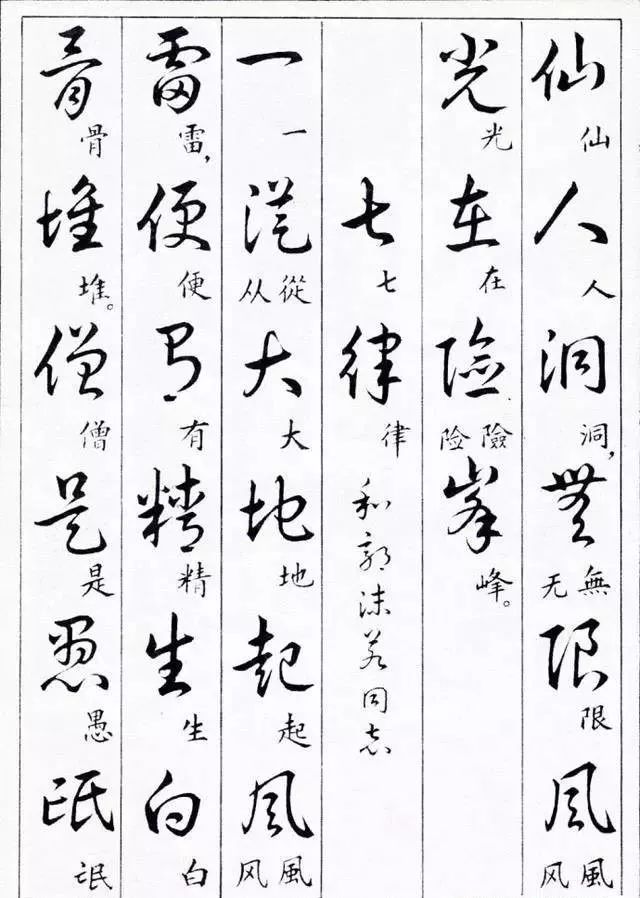 仙人洞無限風
仙人洞，无無限风風
光在險峰
光在险險峰。
七律
七律
和郭沫若同志
一從大地起風
一从從大地起风風
雷便有精生白
雷，便有精生白
骨堆僧是愚氓
骨堆。僧是愚氓